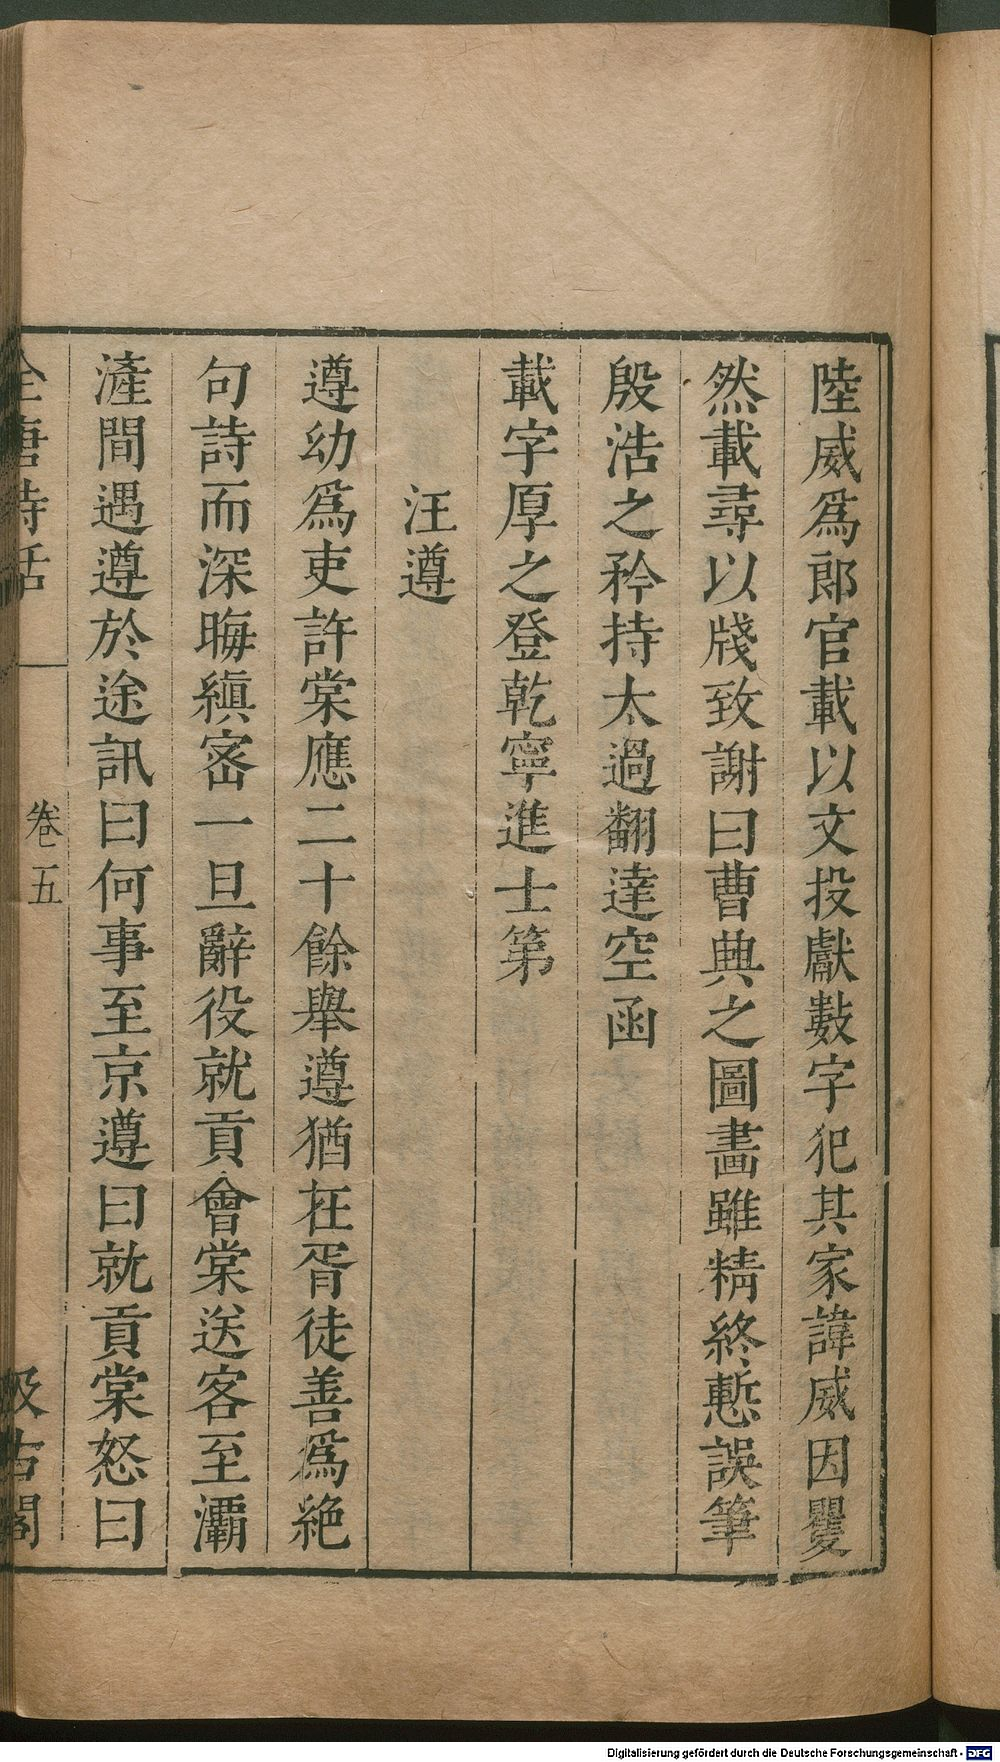 陸威爲郎官載以文投獻數字犯其家諱威因矍
然載尋以牋致謝曰曹興之圖畵雖精終慙誤筆
殷浩之矜持太過翻達空函
載字厚之登乾寧進士第
汪遵
遵幼爲吏許棠應二十餘舉遵猶在胥徒善爲絶
句詩而深晦縝宻一旦辭役就貢會棠送客至灞
滻間遇遵於途訊曰何事至京遵曰就貢棠怒曰
全唐詩話 卷五 汲古閣
Digitalisierung gefördert durch die Deutsche Forschungsgemeinschaft - DFG